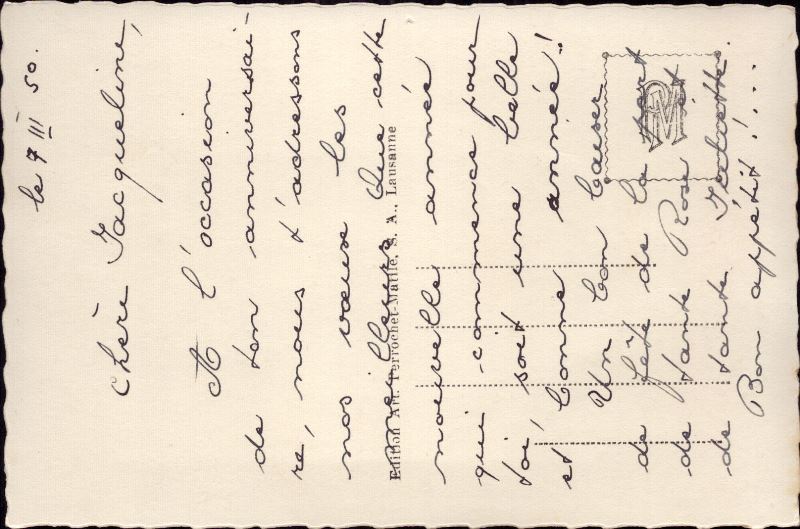 le 7 III 50.
Chère Jacqueline,
A l'occasion
de ton anniversai-
re, nous t'adressons
nos vœux les
meilleurs. Que cette
Edition Art. Perrochet-Matile, S. A., Lausanne
nouvelle année
qui commence pour
toi, soit une belle
et bonne année!
Un bon baiser
PM
de fête de la part
de tante Rose et
de tante
Bon appétit!...